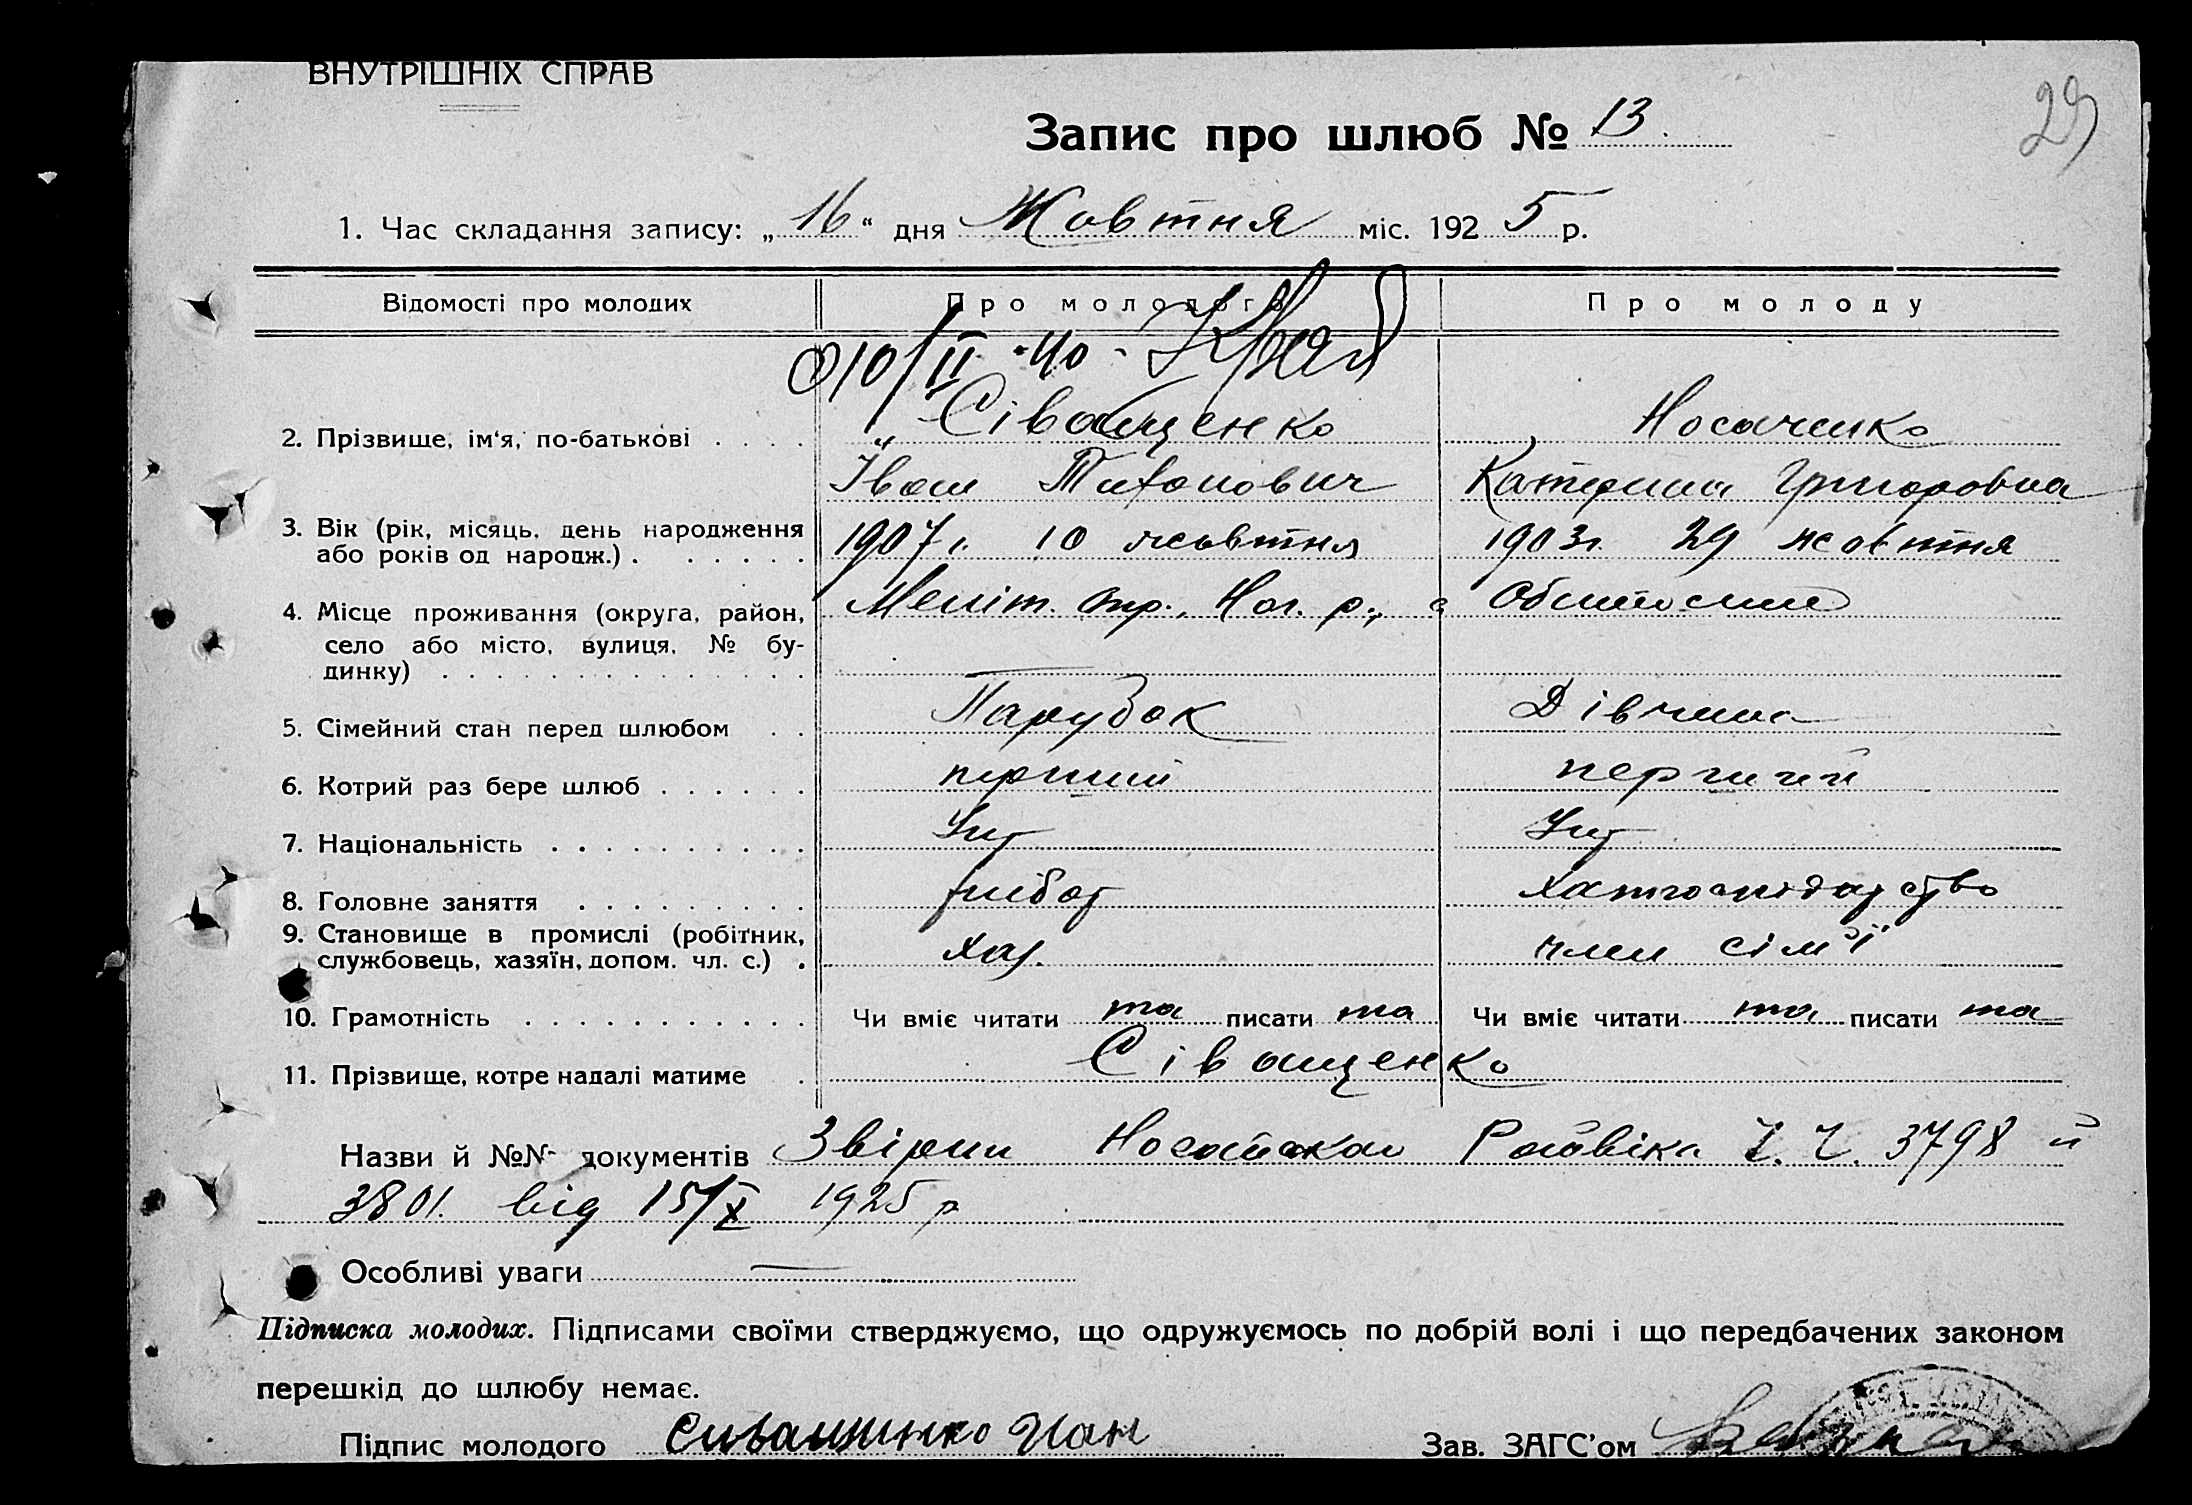 ВНУТРІШНІХ СПРАВ
29
Запис про шлюб № 13.
1. Час складання запису: „16“ дня Жовтня міс. 1925 р.
Відомості про молодих Про молодого Про молоду
10/II-40
2. Прізвище, ім'я, по-батькові . . . . Сіващенко Носаченко
Іван Тихонович Катерина Григоровна
3. Вік (рік, місяць, день народження 1907 р. 10 жовтня 1903 р. 29 жовтня
або років од народж.) . . . . . .
4. Місце проживання (округа, район, Меліт. окр., Ног. р., с Обитошне
село або місто, вулиця, № бу-
динку) . . . . . . . . . . . . . .
5. Сімейний стан перед шлюбом . . Парубок Дівчина
6. Котрий раз бере шлюб . . . . . . перший перший
7. Національність . . . . . . . . . . Укр Укр
8. Головне заняття . . . . . . . . . хлібор хатнє господарство
9. Становище в промислі (робітник, хаз. член сім'ї
службовець, хазяїн, допом. чл. с.) .
10. Грамотність . . . . . . . . . . . Чи вміє читати та писати та Чи вміє читати та писати та
11. Прізвище, котре надалі матиме . Сіващенко
Назви й №№ документів Звірки Ногайского Райвіка Ч. Ч. 3798 й
3801. від 15/X 1925 р
Особливі уваги —
Підписка молодих. Підписами своїми стверджуємо, що одружуємось по добрій волі і що передбачених законом
перешкід до шлюбу немає.
Підпис молодого Сиващинко Иван Зав. ЗАГС'ом